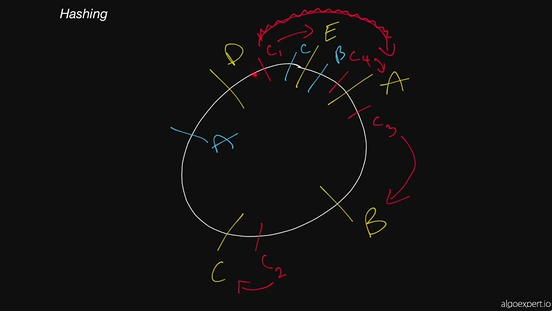 Hashing
D
C1
C
E
B
C4
A
C3
A
B
C2
C
algoexpert.io